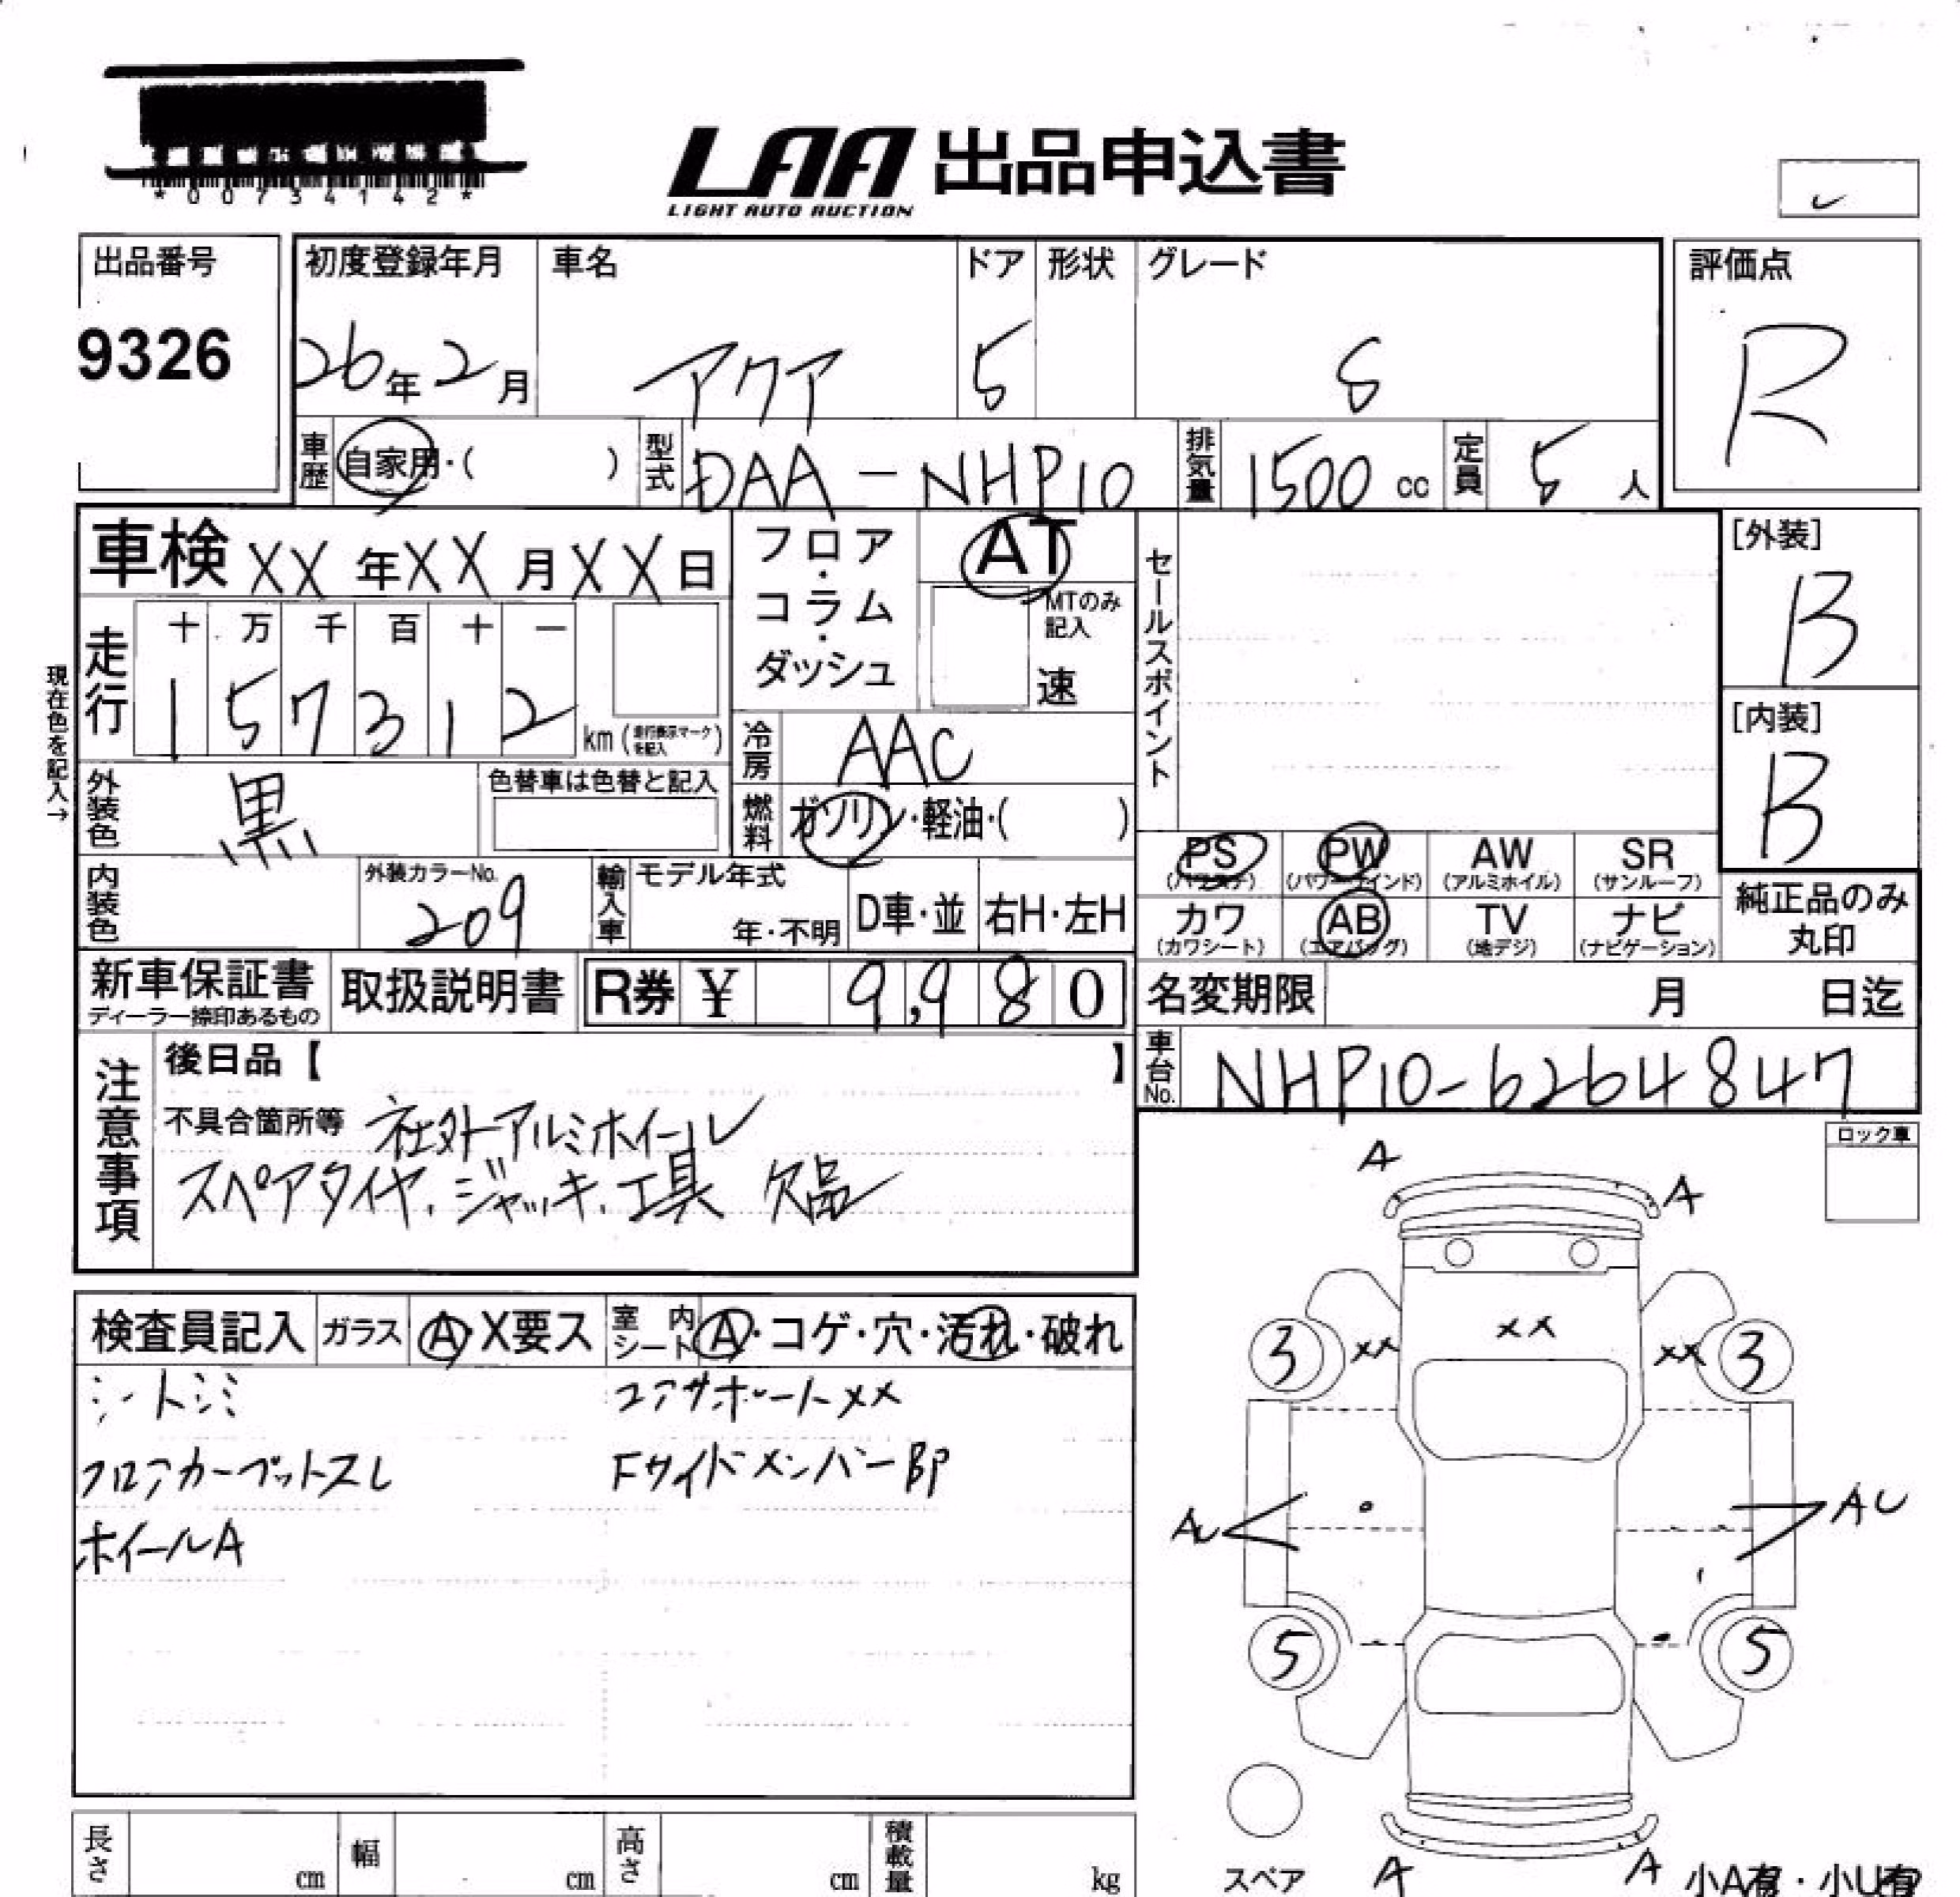 *00734142*
LAA 出品申込書
LIGHT AUTO AUCTION
出品番号
9326
初度登録年月 車名 ドア 形状 グレード
26年2月 アクア 5 S
評価点
R
車歴 自家用・( ) 型式 DAA-NHP10 排気量 1500 cc 定員 5 人
車検 XX年XX月XX日
フロア・コラム・ダッシュ
AT
MTのみ記入
速
セールスポイント
[外装]
B
[内装]
B
現在色を記入→
走行 十 万 千 百 十 一
157312 km (走行表示マークを記入)
冷房 AAC
外装色 黒 色替車は色替と記入
燃料 ガソリン・軽油・( )
PS (パワステ) PW (パワーウインド) AW (アルミホイル) SR (サンルーフ)
カワ (カワシート) AB (エアバッグ) TV (地デジ) ナビ (ナビゲーション)
純正品のみ丸印
内装色 外装カラーNo. 209
輸入車 モデル年式 年・不明 D車・並 右H・左H
新車保証書 取扱説明書 R券 ¥ 9,980
ディーラー捺印あるもの
名変期限 月 日迄
車台No. NHP10-6264847
注意事項
後日品【 】
不具合箇所等 社外アルミホイール
スペアタイヤ、ジャッキ、工具 欠品
ロック車
検査員記入 ガラス A・X要ス 室内シート A・コゲ・穴・汚れ・破れ
シートシミ コアサポートXX
フロアカーペットスレ Fサイドメンバー BP
ホイールA
A
A
XX
3 XX XX 3
AU AU
5 5
スペア
A A
小A有・小U有
長さ cm 幅 cm 高さ cm 積載量 kg